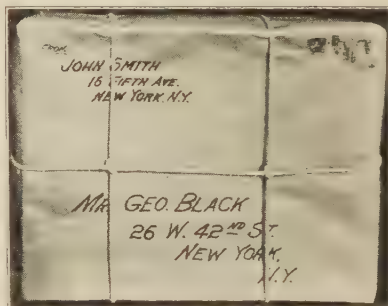 FROM
JOHN SMITH
16 FIFTH AVE.
NEW YORK. N.Y.
MR. GEO. BLACK
26 W. 42ND ST.
NEW YORK,
N.Y.